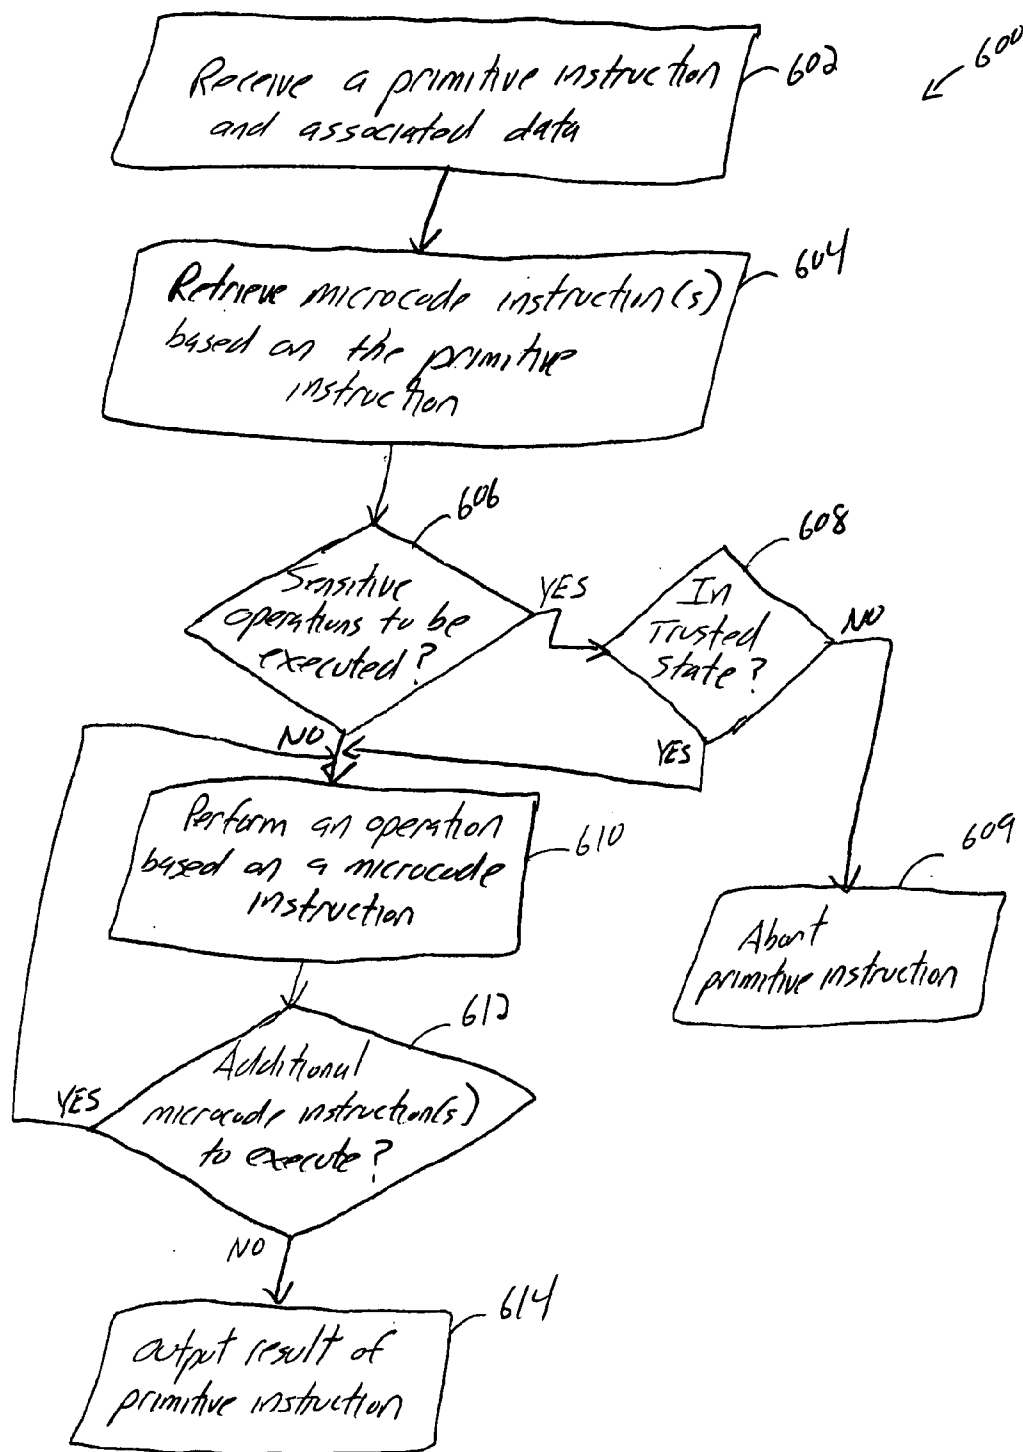 600
Receive a primitive instruction
and associated data
602
Retrieve microcode instruction(s)
based on the primitive
instruction
604
Sensitive
operations to be
executed?
606
YES
In
Trusted
State?
608
NO
NO
YES
Perform an operation
based on a microcode
instruction
610
Abort
primitive instruction
609
Additional
microcode instruction(s)
to execute?
612
YES
NO
Output result of
primitive instruction
614